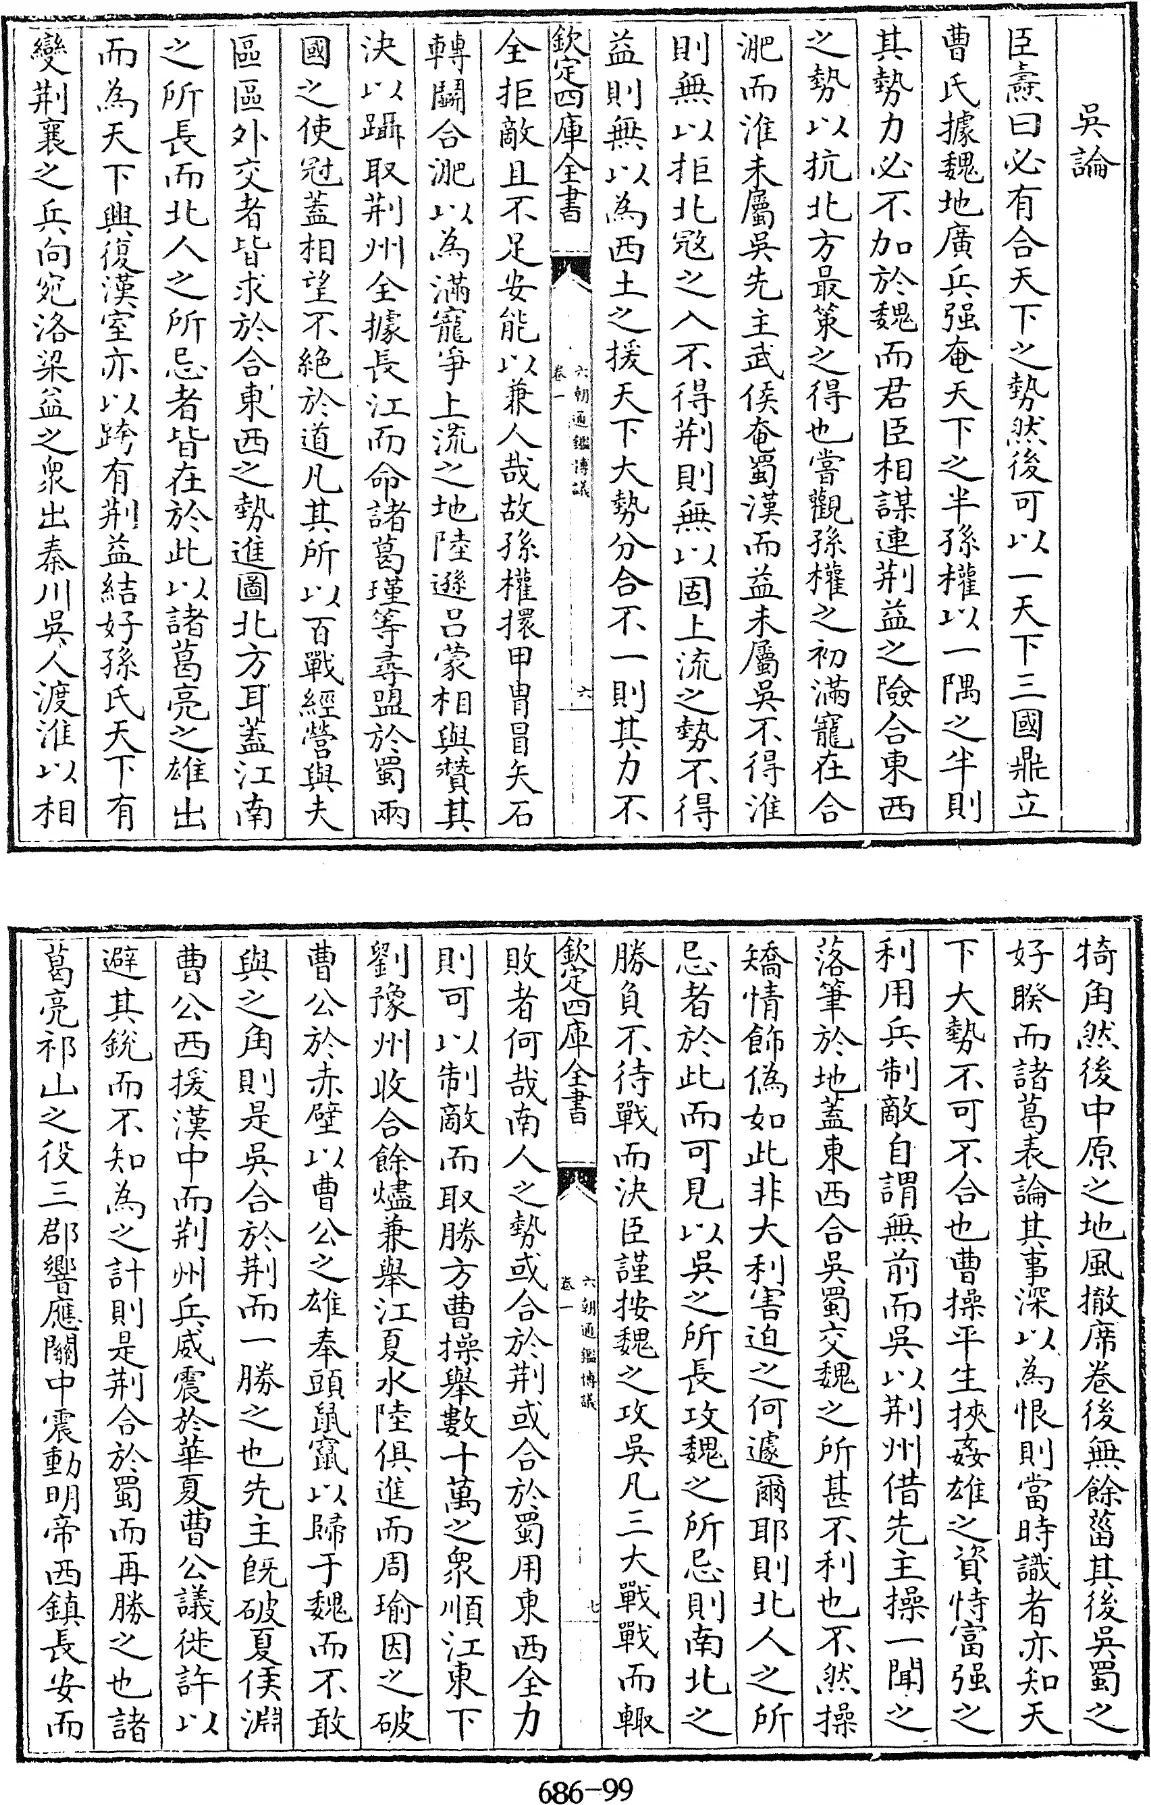 吳論
臣燾曰必有合天下之勢然後可以一天下三國鼎立
曹氏據魏地廣兵强奄天下之半孫權以一隅之半則
其勢力必不加於魏而君臣相謀連荆益之險合東西
之勢以抗北方最策之得也嘗觀孫權之初滿寵在合
淝而淮未屬吳先主武侯奄蜀漢而益未屬吳不得淮
則無以拒北冦之入不得荆則無以固上流之勢不得
益則無以為西土之援天下大勢分合不一則其力不
欽定四庫全書
六朝通鑑博議
卷一
六
全拒敵且不足安能以兼人哉故孫權擐甲胄冒矢石
轉鬭合淝以為滿寵爭上流之地陸遜呂蒙相與贊其
決以躡取荆州全據長江而命諸葛瑾等尋盟於蜀兩
國之使冠蓋相望不絶於道凡其所以百戰經營與夫
區區外交者皆求於合東西之勢進圖北方耳蓋江南
之所長而北人之所忌者皆在於此以諸葛亮之雄出
而為天下興復漢室亦以跨有荆益結好孫氏天下有
變荆襄之兵向宛洛梁益之衆出秦川吳人渡淮以相
犄角然後中原之地風撤席卷後無餘菑其後吳蜀之
好睽而諸葛表論其事深以為恨則當時識者亦知天
下大勢不可不合也曹操平生挾姦雄之資恃富强之
利用兵制敵自謂無前而吳以荆州借先主操一聞之
落筆於地蓋東西合吳蜀交魏之所甚不利也不然操
矯情飾偽如此非大利害迫之何遽爾耶則北人之所
忌者於此而可見以吳之所長攻魏之所忌則南北之
勝負不待戰而決臣謹按魏之攻吳凡三大戰戰而輒
欽定四庫全書
六朝通鑑博議
卷一
七
敗者何哉南人之勢或合於荆或合於蜀用東西全力
則可以制敵而取勝方曹操舉數十萬之衆順江東下
劉豫州收合餘燼兼舉江夏水陸俱進而周瑜因之破
曹公於赤壁以曹公之雄奉頭鼠竄以歸于魏而不敢
與之角則是吳合於荆而一勝之也先主旣破夏侯淵
曹公西援漢中而荆州兵威震於華夏曹公議徙許以
避其銳而不知為之計則是荆合於蜀而再勝之也諸
葛亮祁山之役三郡響應關中震動明帝西鎮長安而
686-99